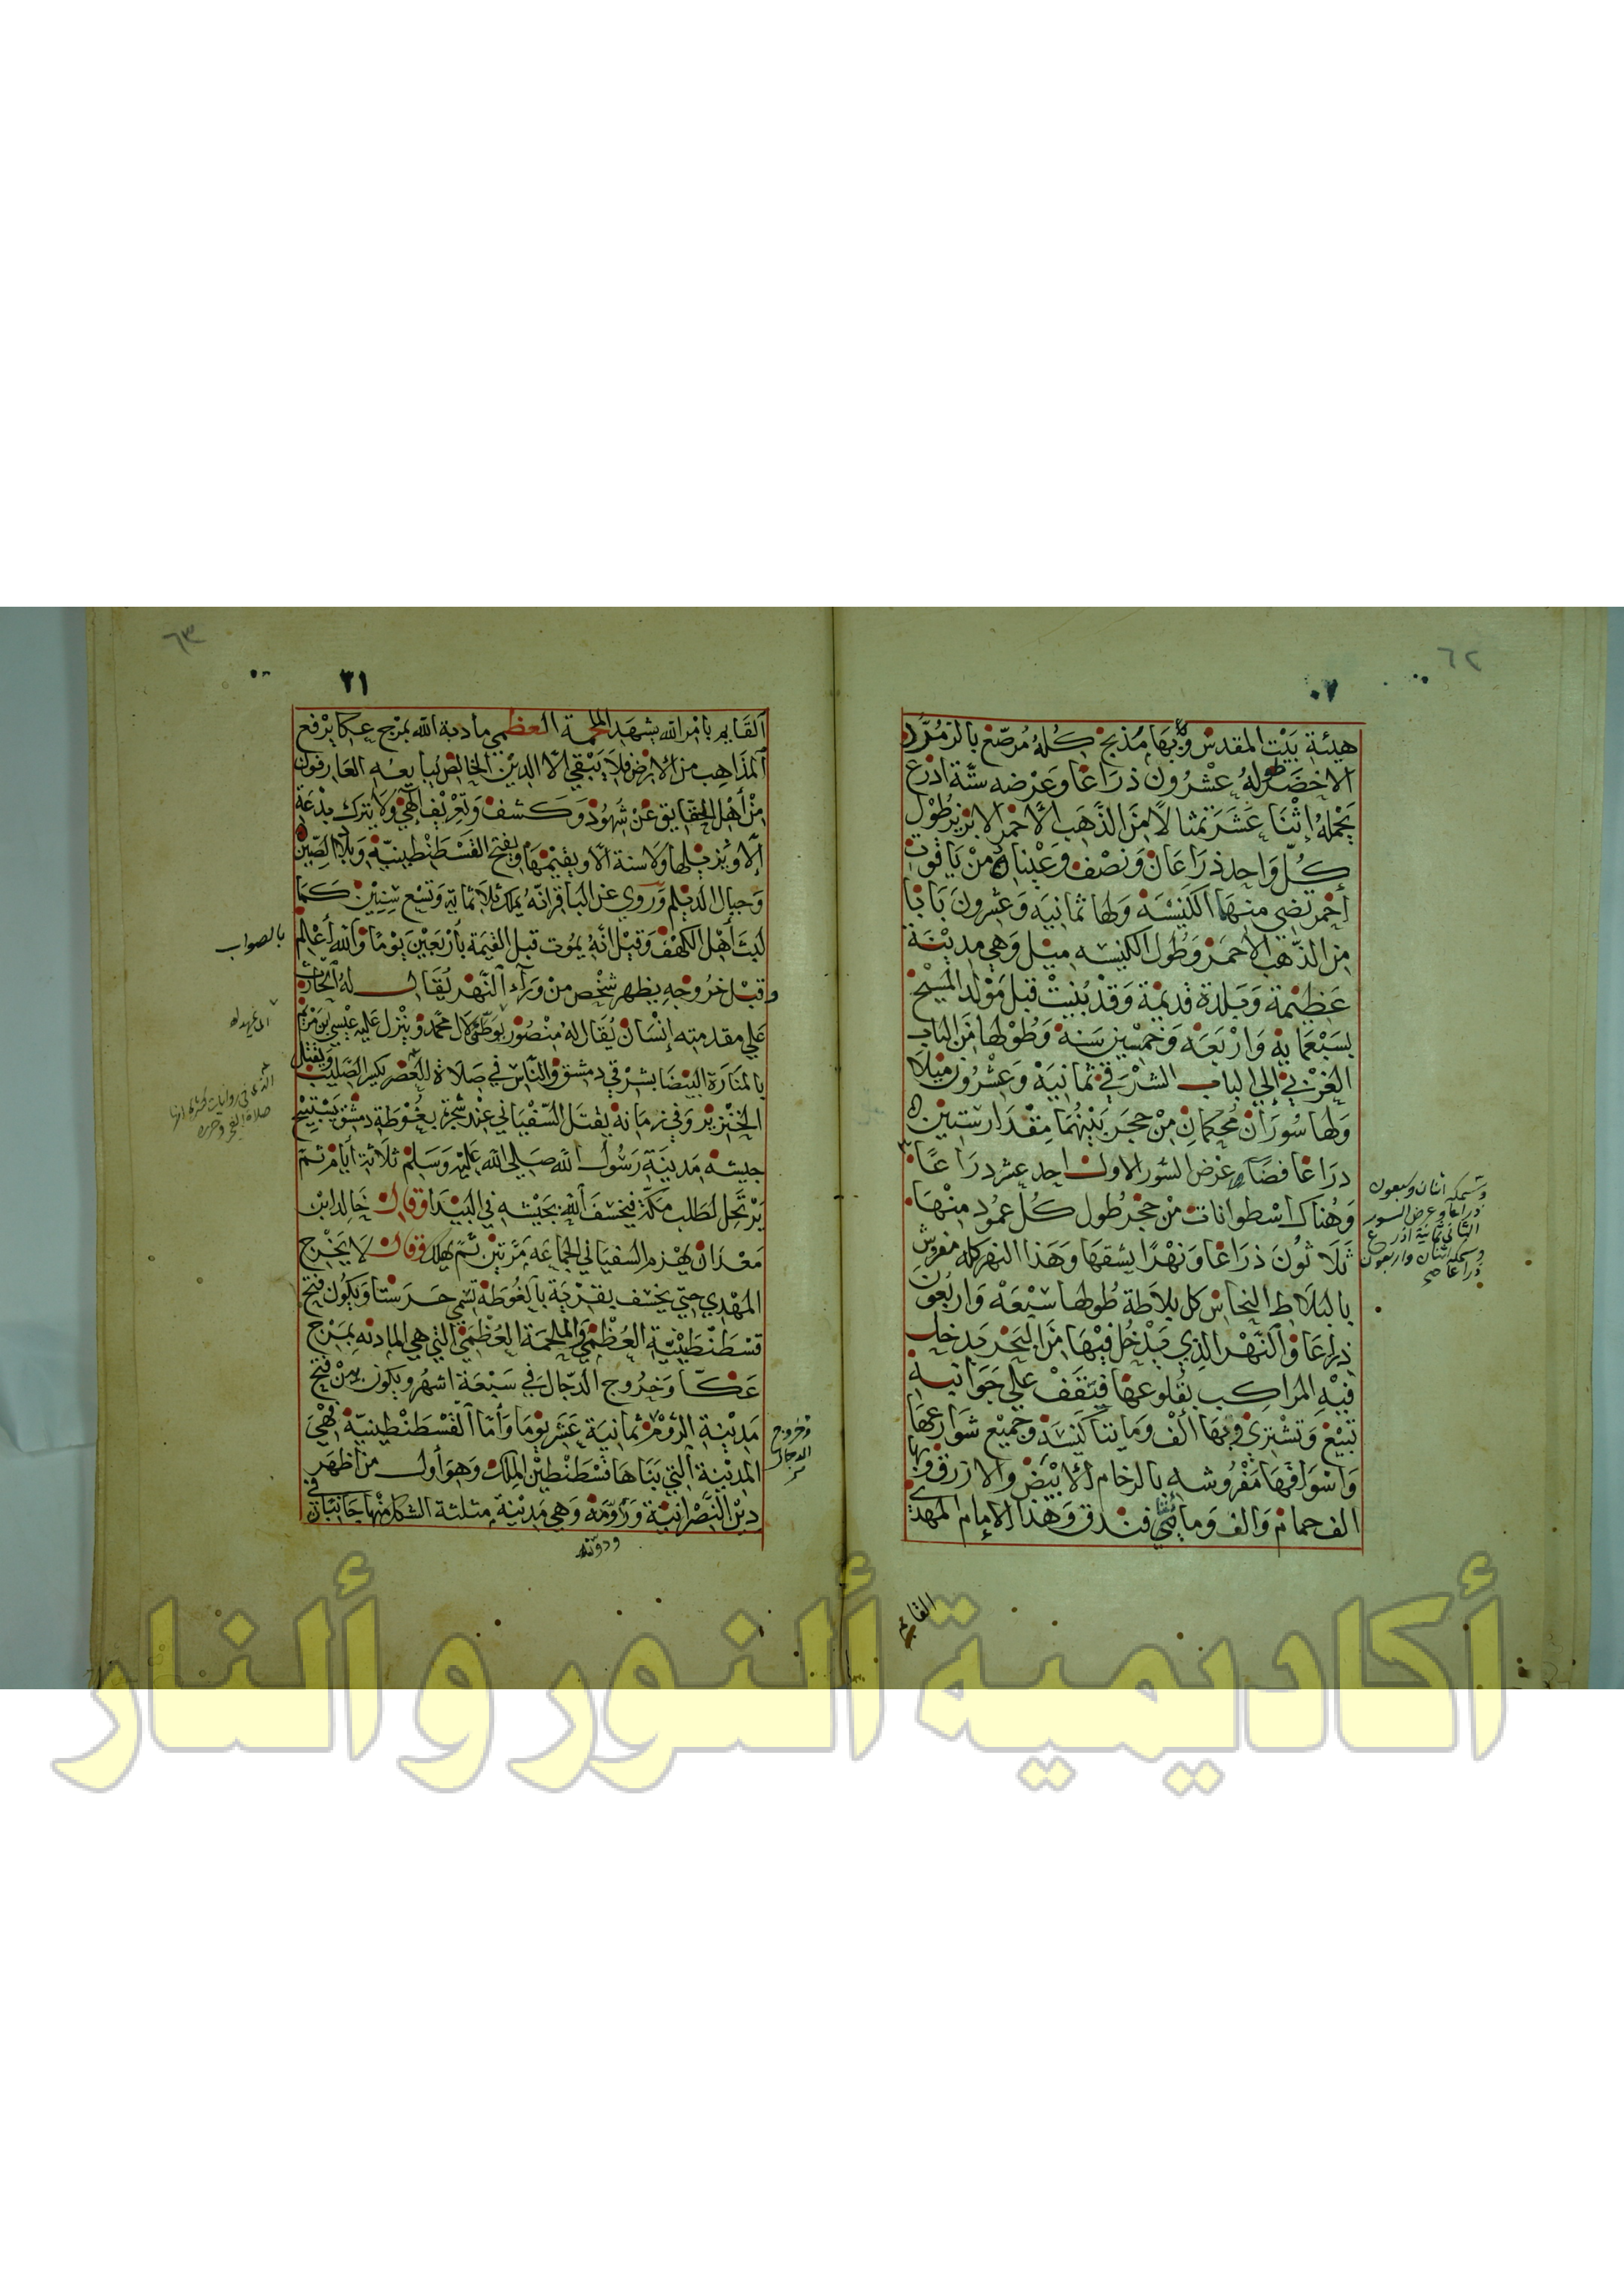 ٦٢
هيئة بيت المقدس وبها مذبح كله مرصع بالزمرد
الاخضر طوله عشرون ذراعا وعرضه ستة اذرع
يحمله إثنا عشر تمثالا من الذهب الأحمر الابريز طول
كل واحد ذراعان ونصف وعيناه من ياقوت
أحمر تضي منهما الكنيسة ولها ثمانية وعشرون بابا
من الذهب الاحمر وطول الكنيسه ميل وهي مدينة
عظيمة وبلدة قديمة وقد بنيت قبل مولد المسيح
بسبعمايه واربعة وخمسين سنة وطولها من الباب
الغربي إلي الباب الشرقي ثمانية وعشرون ميلا
ولها سوران محكمان من حجر بينهما مقدار ستين
ذراعا فضا عرض السور الاول احد عشر ذراعا
وهناك اسطوانات من حجر طول كل عمود منها
ثلاثون ذراعا ونهرا يشقها وهذا النهر كله مفروش
بالبلاط النحاس كل بلاطة طولها سبعة واربعون
ذراعا والنهر الذي يدخل فيها من البحر يدخل
فيه المراكب بقلوعها فيقف علي جوانبه
تبيع وتشتري وبها ألف ومايتا كنيسة وجميع شوارعها
واسواقها مفروشه بالرخام الأبيض والازرق وبها
الف حمام والف ومايتي فندق وهذا الإمام المهدي
وسمكه اثنان وسبعون
ذراعا وعرض السور
الثاني ثمانية اذرع
وسمكه اثنان واربعون
ذراعا صح
القايم
٦٣
٣١
القايم بامر الله يشهد الملحمة العظمي مادبة الله بمرج عكا يرفع
المذاهب من الارض فلا يبقي الا الدين الخالص يبايعه العارفون
من أهل الحقايق عن شهود وكشف وتعريف الهي ولا يترك بدعة
الا ويزيلها ولا سنة الا ويقيمها ويفتح القسطنطينية وبلاد الصين
وجبال الديلم وروي عن الباقر انه يملك ثلاثماية وتسع سنين كما
لبث أهل الكهف وقيل انه يموت قبل القيمة بأربعين يوما والله أعلم
بالصواب
وقبل خروجه يظهر شخص من وراء النهر يقال له الحارث
علي مقدمته إنسان يقال له منصور يوطئ لال محمد وينزل عليه عيسي بن مريم
بالمنارة البيضا بشرقي دمشق والناس في صلاة العصر يكسر الصليب ويقتل
الخنزير وفي زمانه يقتل السفياني عند شجرة بغوطة دمشق يستبيح
جيشه مدينة رسول الله صلي الله عليه وسلم ثلاثة أيام ثم
يرتحل لطلب مكة فيخسف الله بجيشه في البيدا وقال خالد ابن
معدان يهزم السفياني الجماعه مرتين ثم يهلك وقال لا يخرج
المهدي حتي يخسف بقرية بالغوطة تسمي حرستا ويكون فتح
قسطنطينية العظمي والملحمة العظمي التي هي المادبه بمرج
عكا وخروج الدجال في سبعة اشهر ويكون بين فتح
مدينة الروم ثمانية عشر يوما وأما القسطنطينية فهي
المدينة التي بناها قسطنطين الملك وهو أول من أظهر
دين النصرانية ودونه وهي مدينة مثلثة الشكل منها جانبان في
وخروج
الدجال
ودونه